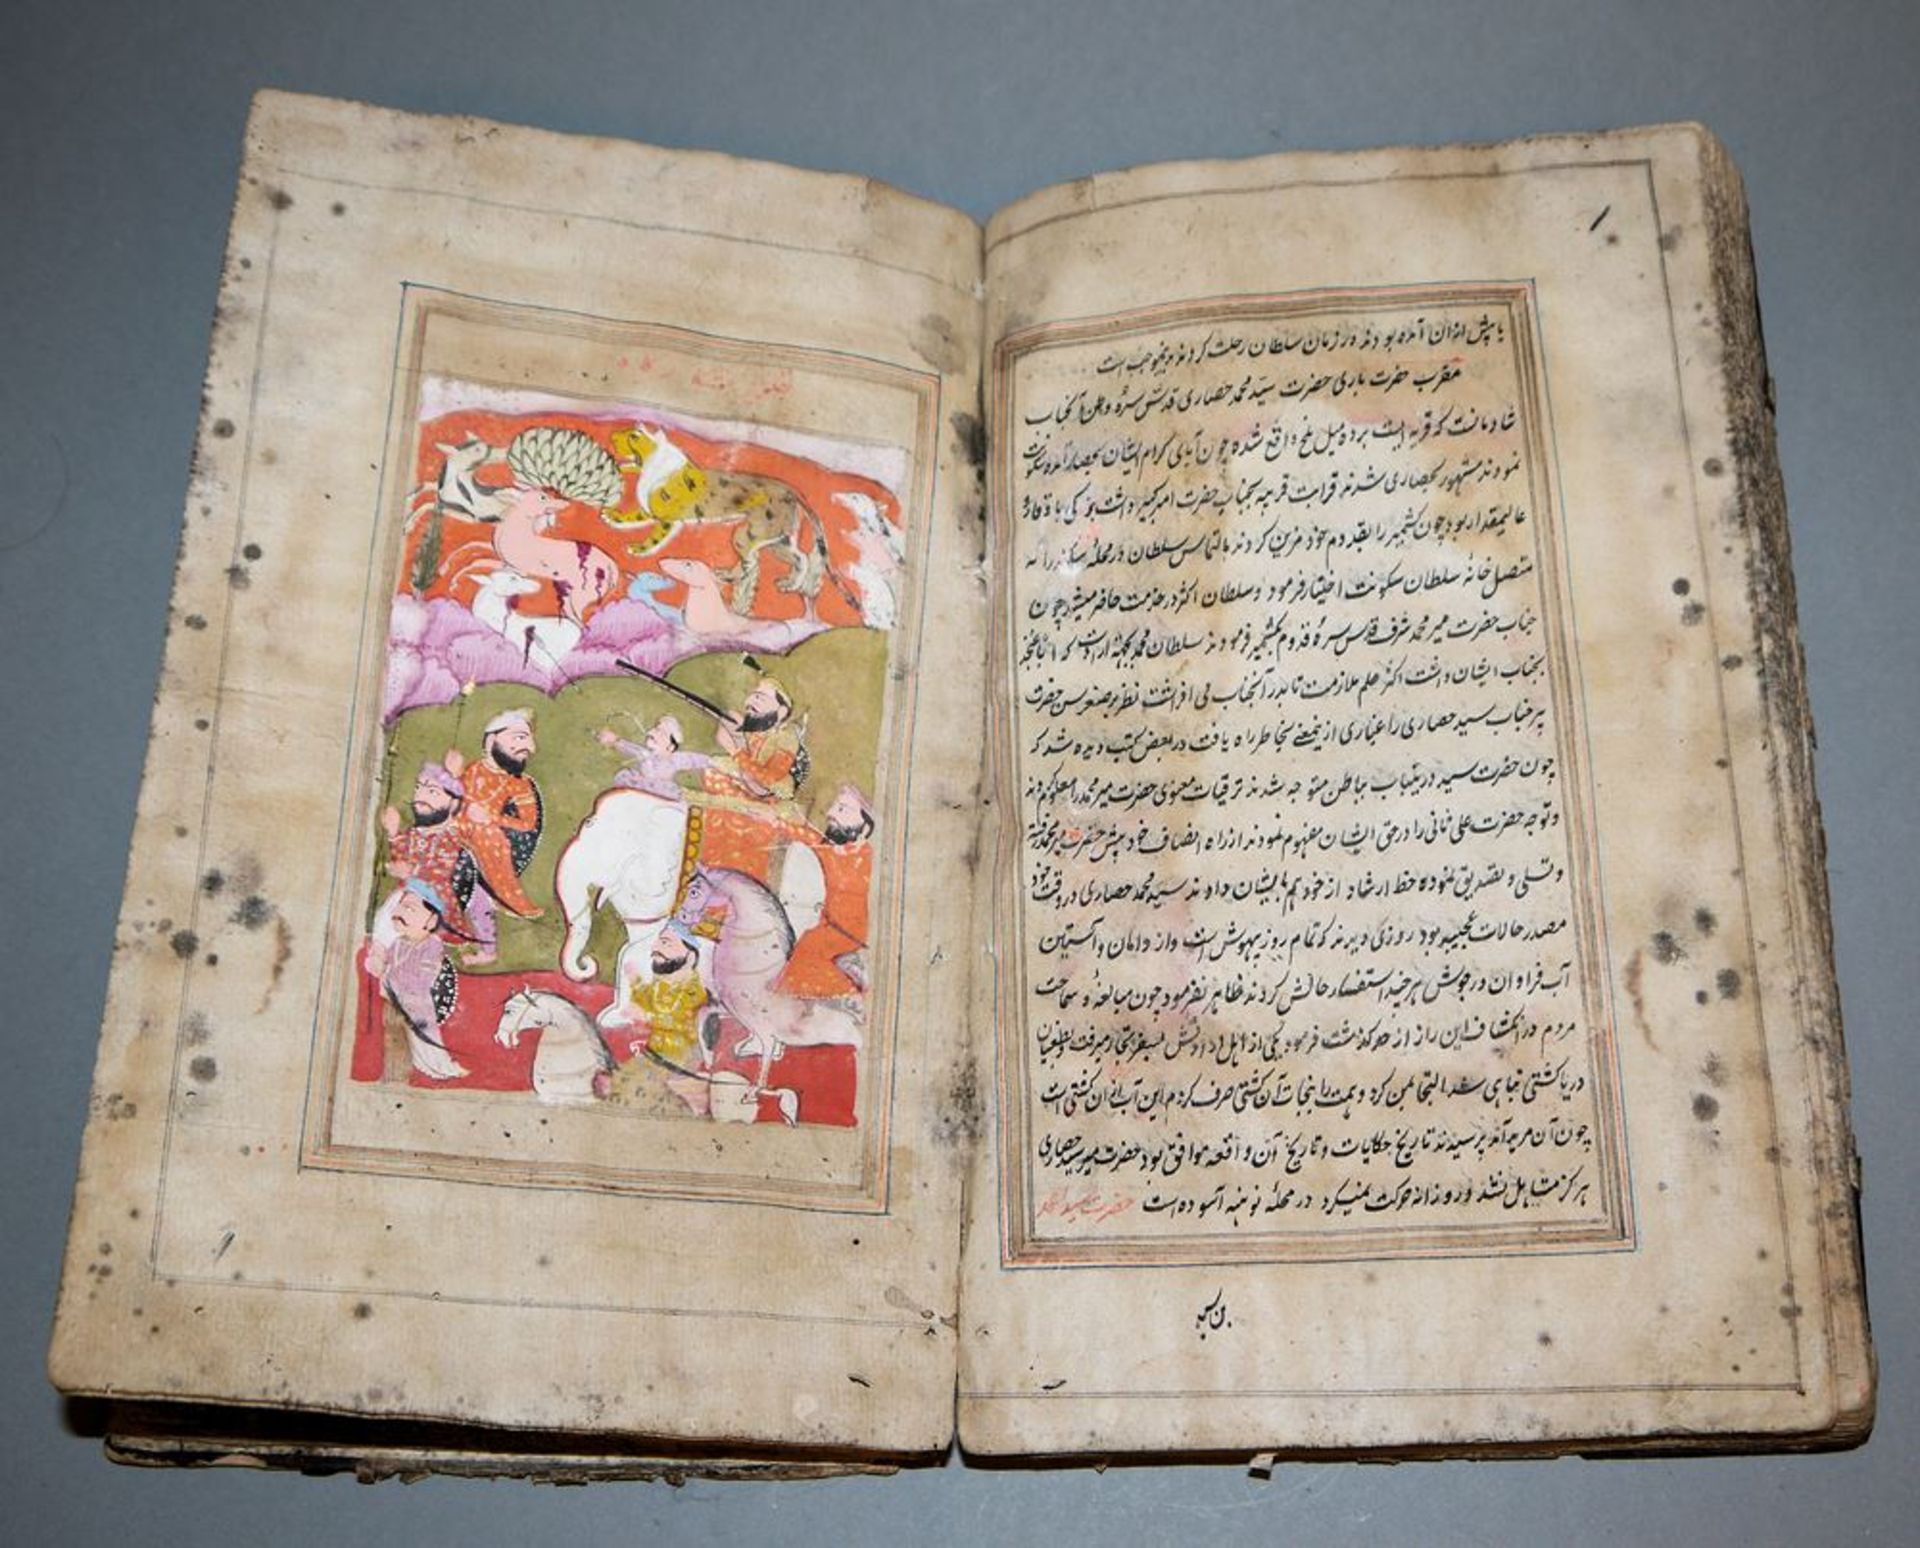 یا پیش ازان آمده بودند در زمان سلطان رحلت کردند بدینموجب است
مقرب حضرت باری حضرت سید محمد حصاری قدس سره وطن آنجناب
شادمانست که قریه ایست برده میل بلخ واقع شده چون آبای کرام ایشان بحصار آمده سکونت
نمودند مشهور بحصاری شدند قرابت قریبه بجناب حضرت امیر کبیر داشت بزرگی با وقار و
عالیمقدار بود چون کشمیر را بقدوم خود مزین کردند بالتماس سلطان در محله سکندرا که
متصل خانه سلطان سکونت اختیار فرمود و سلطان اکثر در خدمت حاضر میشد چون
جناب حضرت میر محمد شرف قدس سره قدوم کشمیر فرمودند سلطان محمد بجهته ارادت که
بجناب ایشان داشت اکثر علم ملازمت تا بدر آنجناب می افراشت نظر بر صغر سن حضرت
میر جناب سید حصاری را غباری از ینمعنی بخاطر راه یافت در بعض کتب دیده شد که
چون حضرت سید درینباب بباطن متوجه شدند ترقیات معنوی حضرت میر محمد را معلوم کردند
و توجه حضرت علی ثانی را در حق ایشان مفهوم نمودند از راه انصاف خود پیش حضرت میر محمد رفته
و تسلی و تصدیق نموده خط ارشاد از خود هم بایشان دادند سید محمد حصاری در وقت خود
مصدر حالات عجیبه بود روزی دیدند که تمام روز بیهوش است و از دامان و آستین
آب فراوان در جوش هر چند استفسار حالش کردند ظاهر نفرمود چون مبالغه و سماجت
مردم در انکشاف این راز از حد گذشت فرمود یکی از اهل ودادش بسفر تجار میرفت و بطغیان
دریا کشتی تباهی شد التجا بمن کرد و همت را بنجات آن کشتی صرف کردم این آب ازان کشتی است
چون آن مرید آمد پرسیدند تاریخ حکایات و تاریخ آن واقعه موافق بود حضرت میر سید حصاری
هرگز متاهل نشد و روزانه حرکت نمیکرد در محله نوهته آسوده است حضرت سید